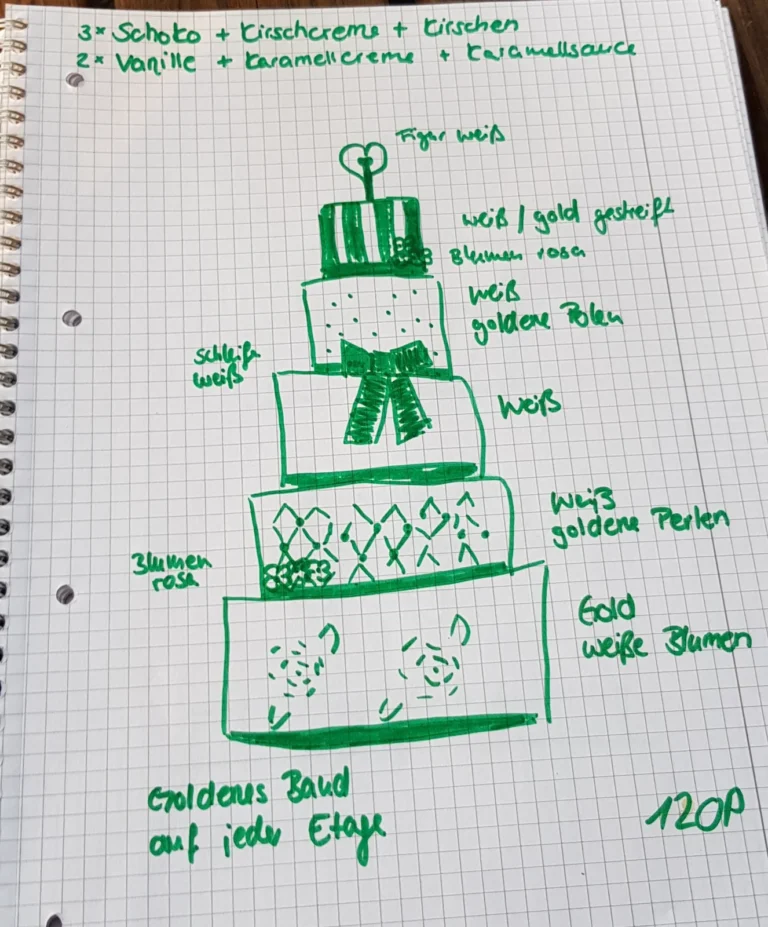 3x Schoko + Kirschcreme + Kirschen
2x Vanille + Karamellcreme + Karamellsauce
Figur weiß
weiß / gold gestreift
Blumen rosa
weiß
goldene Polen
Schleife
weiß
Weiß
weiß
goldene Perlen
Blumen
rosa
Gold
weiße Blumen
Goldenes Band
auf jeder Etage
120P